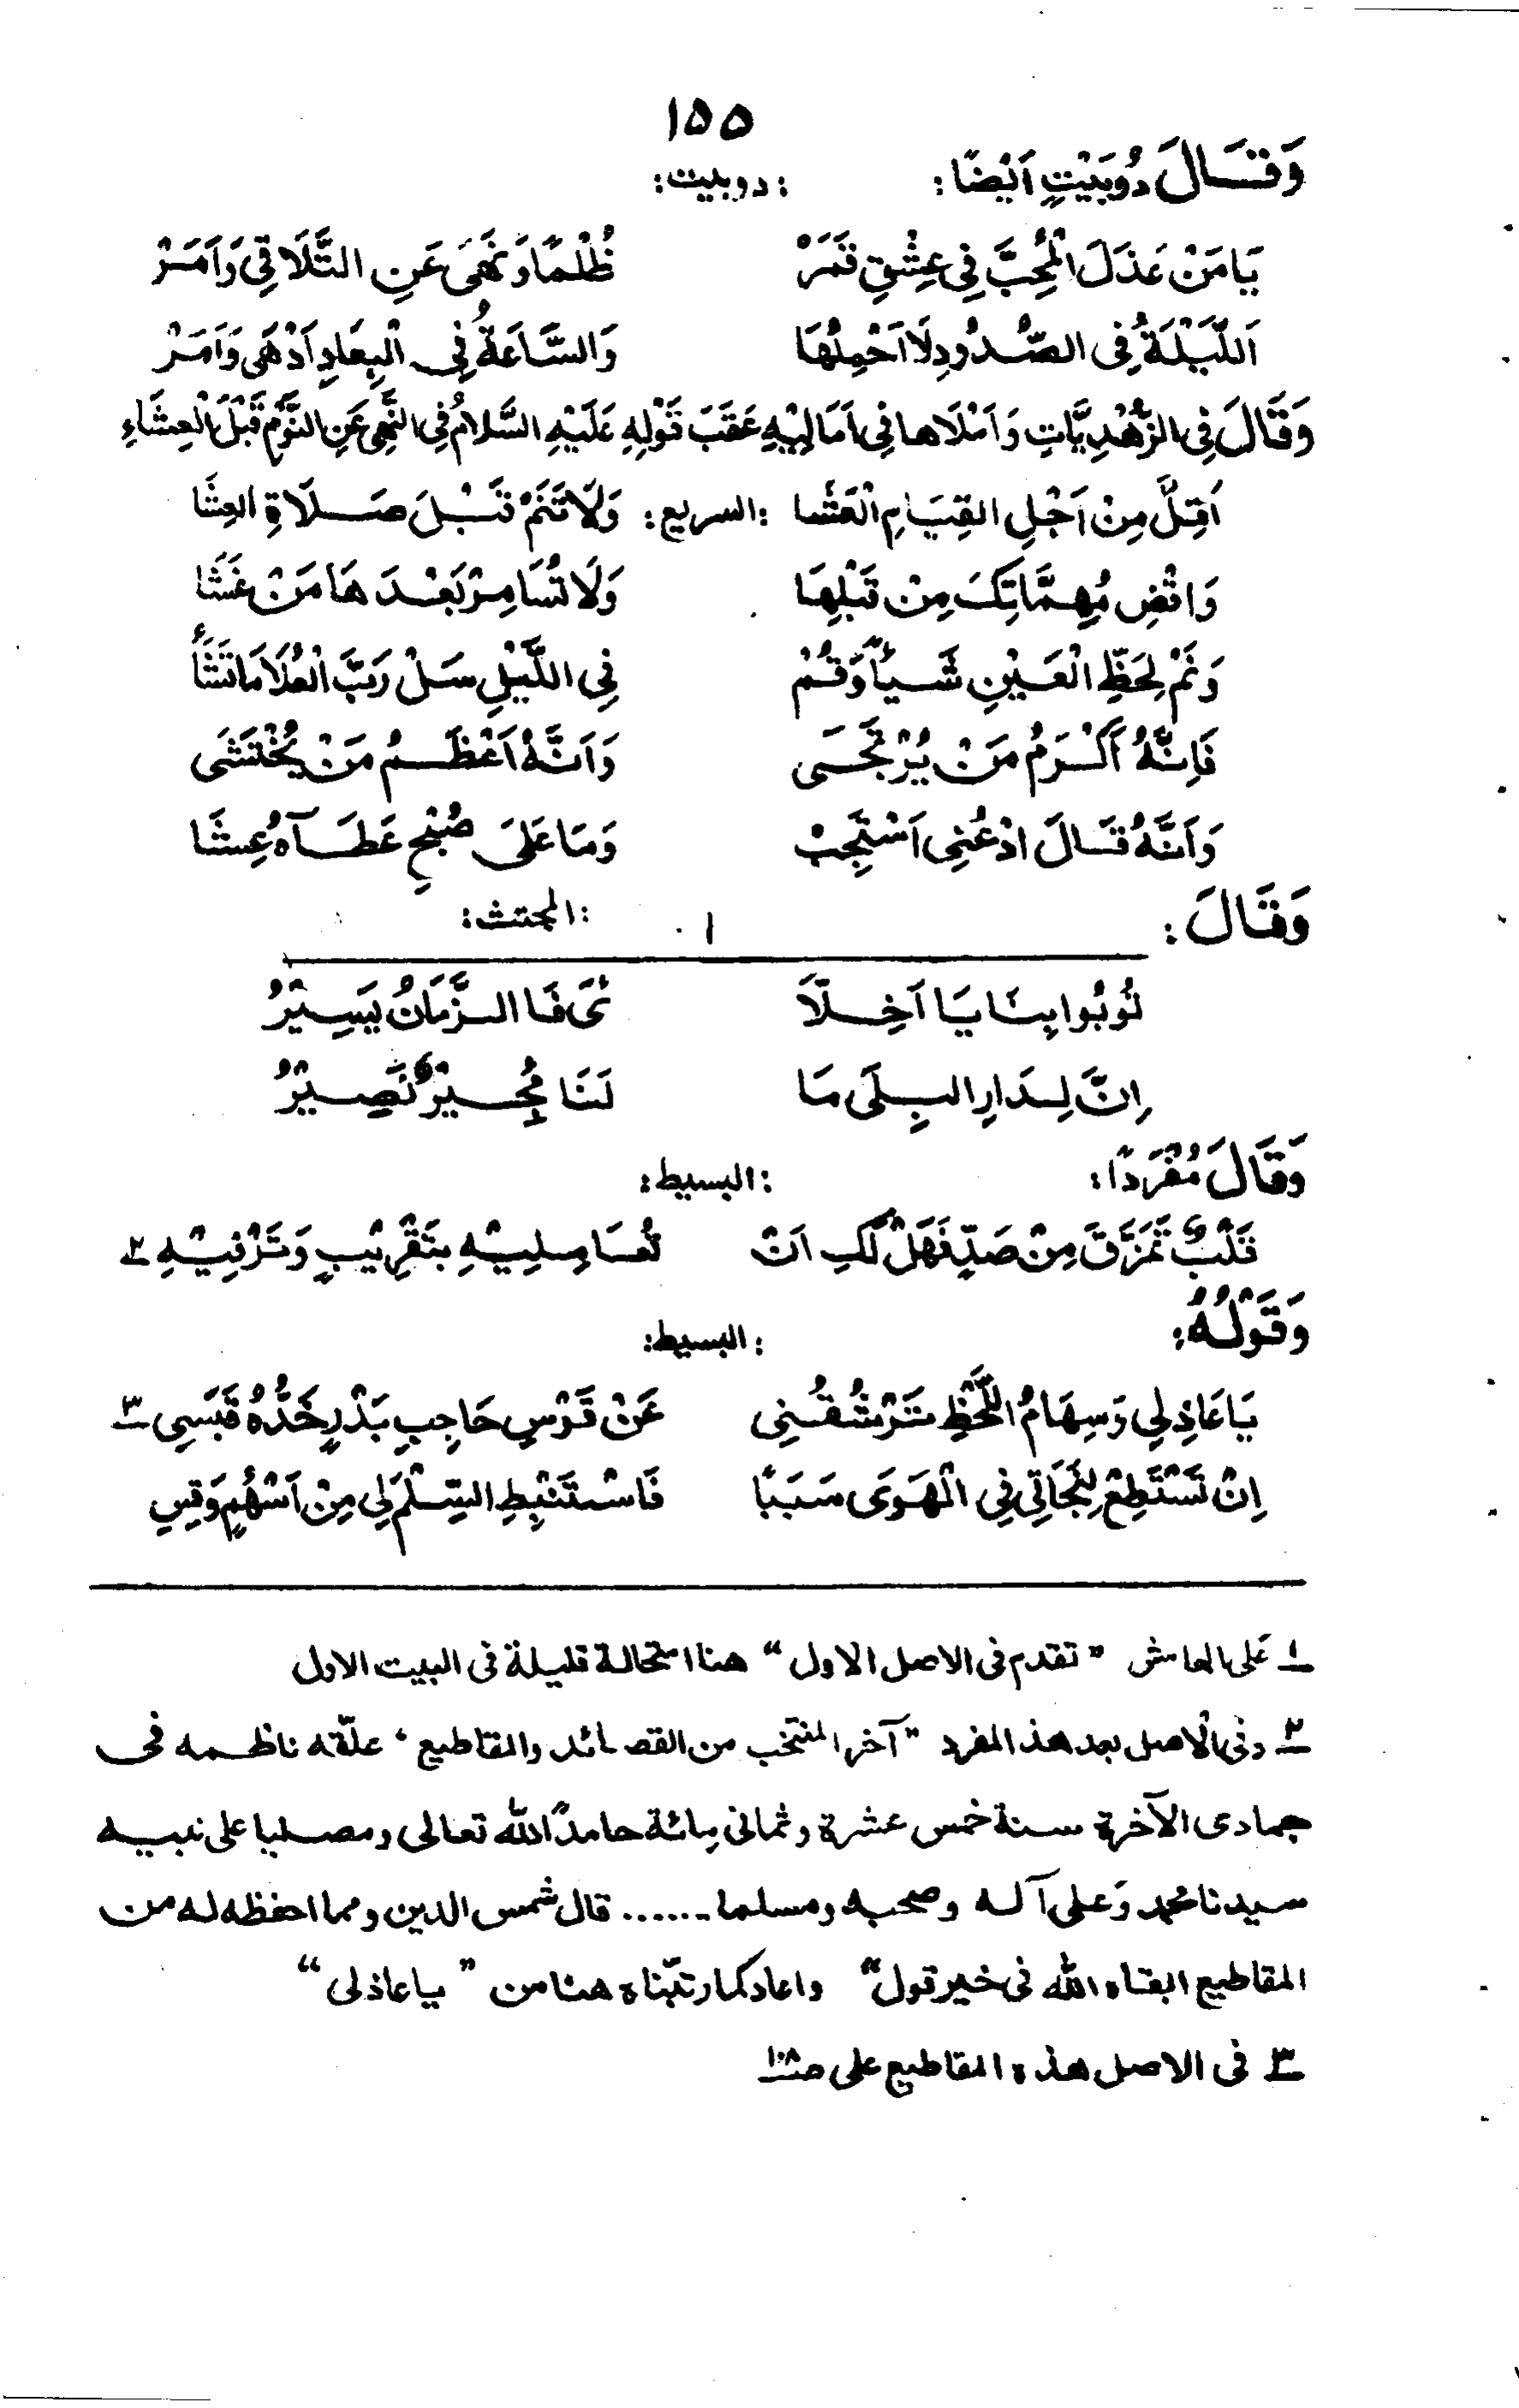 ١٥٥
وَقَالَ دُوبَيْتٍ اَيْضًا: :دوبيت:
يَا مَنْ عَذَلَ الْمُحِبَّ فِي عِشْقِ قَمَرْ ظُلْمًا وَنَهَى عَنِ التَّلَاقِي وَاَمَرْ
اَللَّيْلَةُ فِي الصُّدُودِ لَا اَحْمِلُهَا وَالسَّاعَةُ فِي الْبِعَادِ اَدْهَى وَاَمَرْ
وَقَالَ فِي الزُّهْدِيَّاتِ وَاَمْلَاها فِي اَمَالِيْهِ عَقَبَ قَوْلِهِ عَلَيْهِ السَّلَامُ فِي النَّهْيِ عَنِ النَّوْمِ قَبْلَ الْعِشَاءِ
اَقِلَّ مِنْ اَجْلِ القِيَامِ الْعَشَا :السريع: وَلَا تَنَمْ قَبْلَ صَلَاةِ العِشَا
وَاقْضِ مُهِمَّاتِكَ مِنْ قَبْلِهَا وَلَا تُسَامِرْ بَعْدَهَا مَنْ غَشَا
وَنَمْ لِحَظِّ الْعَيْنِ شَيْأً وَقُمْ فِي اللَّيْلِ سَلْ رَبَّ الْعُلَا مَا تَشَأْ
فَاِنَّهُ اَكْرَمُ مَنْ يُرْتَجَى وَاَنَّهُ اَعْظَمُ مَنْ يُخْتَشَى
وَاَنَّهُ قَالَ ادْعُنِي اَسْتَجِبْ وَمَا عَلَى صُبْحِ عَطَآهُ عِشَا
وَقَالَ: ١ :المجتث:
تُوبُوا بِنَا يَا اَخِلَّا ئى فَا الزَّمَانُ يَسِيْرُ
اِنَّ لِدَارِ البِلَى مَا لَنَا مُجِيْرٌ نَصِيْرُ
وَقَالَ مُفْرَدًا: :البسيط:
قَلْبٌ تَمَزَّقَ مِنْ صَدٍّ فَهَلْ لَكِ اَنْ تُعَامِلِيْهِ بِتَقْرِيْبٍ وَتَرْفِيْهِ ٢
وَقَوْلُهُ: :البسيط:
يَا عَاذِلِي وَسِهَامُ اللَّحْظِ تَرْشُقُنِي عَنْ قَوْسِ حَاجِبِ بَدْرٍ خَدُّهُ قَبَسِي ٣
اِنْ تَسْتَطِعْ لِنَجَاتِي فِي الْهَوَى سَبَبًا فَاسْتَنْبِطِ السِّلْمَ لِي مِنْ اَسْهُمٍ وَقِسِ
١ عَلى الهامش "تقدم فى الاصل الاول" هنا استحالة قليلة فى البيت الاول
٢ وفى الاصل بعد هذ المفرد "آخر المنتخب من القصائد والمقاطيع، علّقه ناظمه فى
جمادى الآخرة سنة خمس عشرة وثمانى مائة حامدًا الله تعالى ومصليا على نبيه
سيدنا محمد وَعلى آله وصحبه ومسلما ....... قال شمس الدين ومما احفظه له من
المقاطيع ابقاه الله فى خير قول" واعاد كما رتبّناه هنا من "يا عاذلى"
٣ فى الاصل هذه المقاطيع على